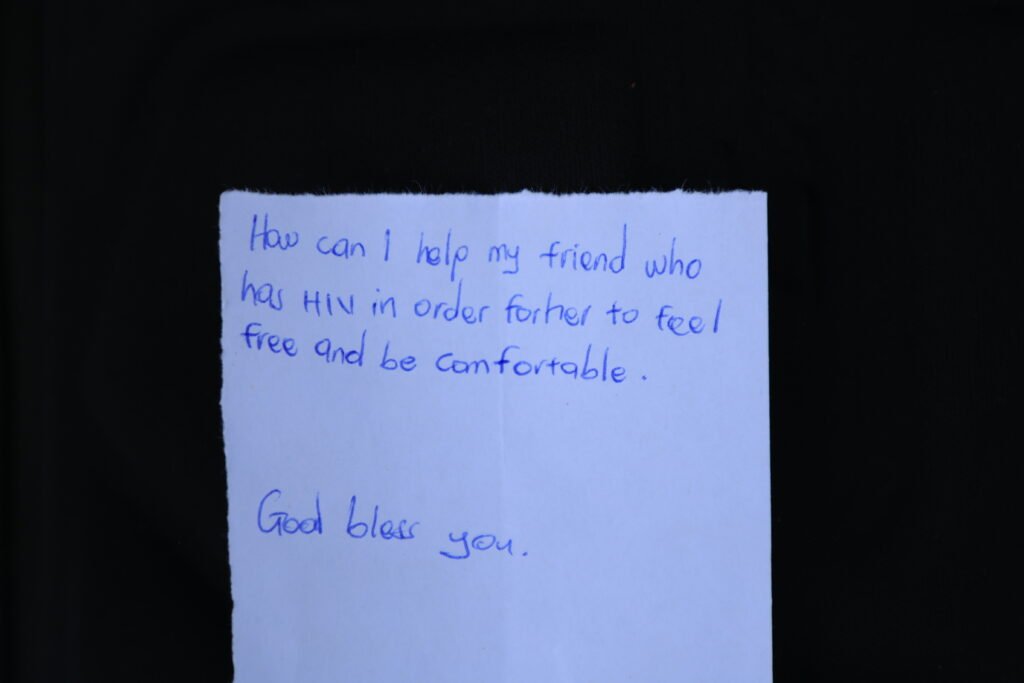 How can I help my friend who
has HIV in order forher to feel
free and be comfortable.
God bless you.